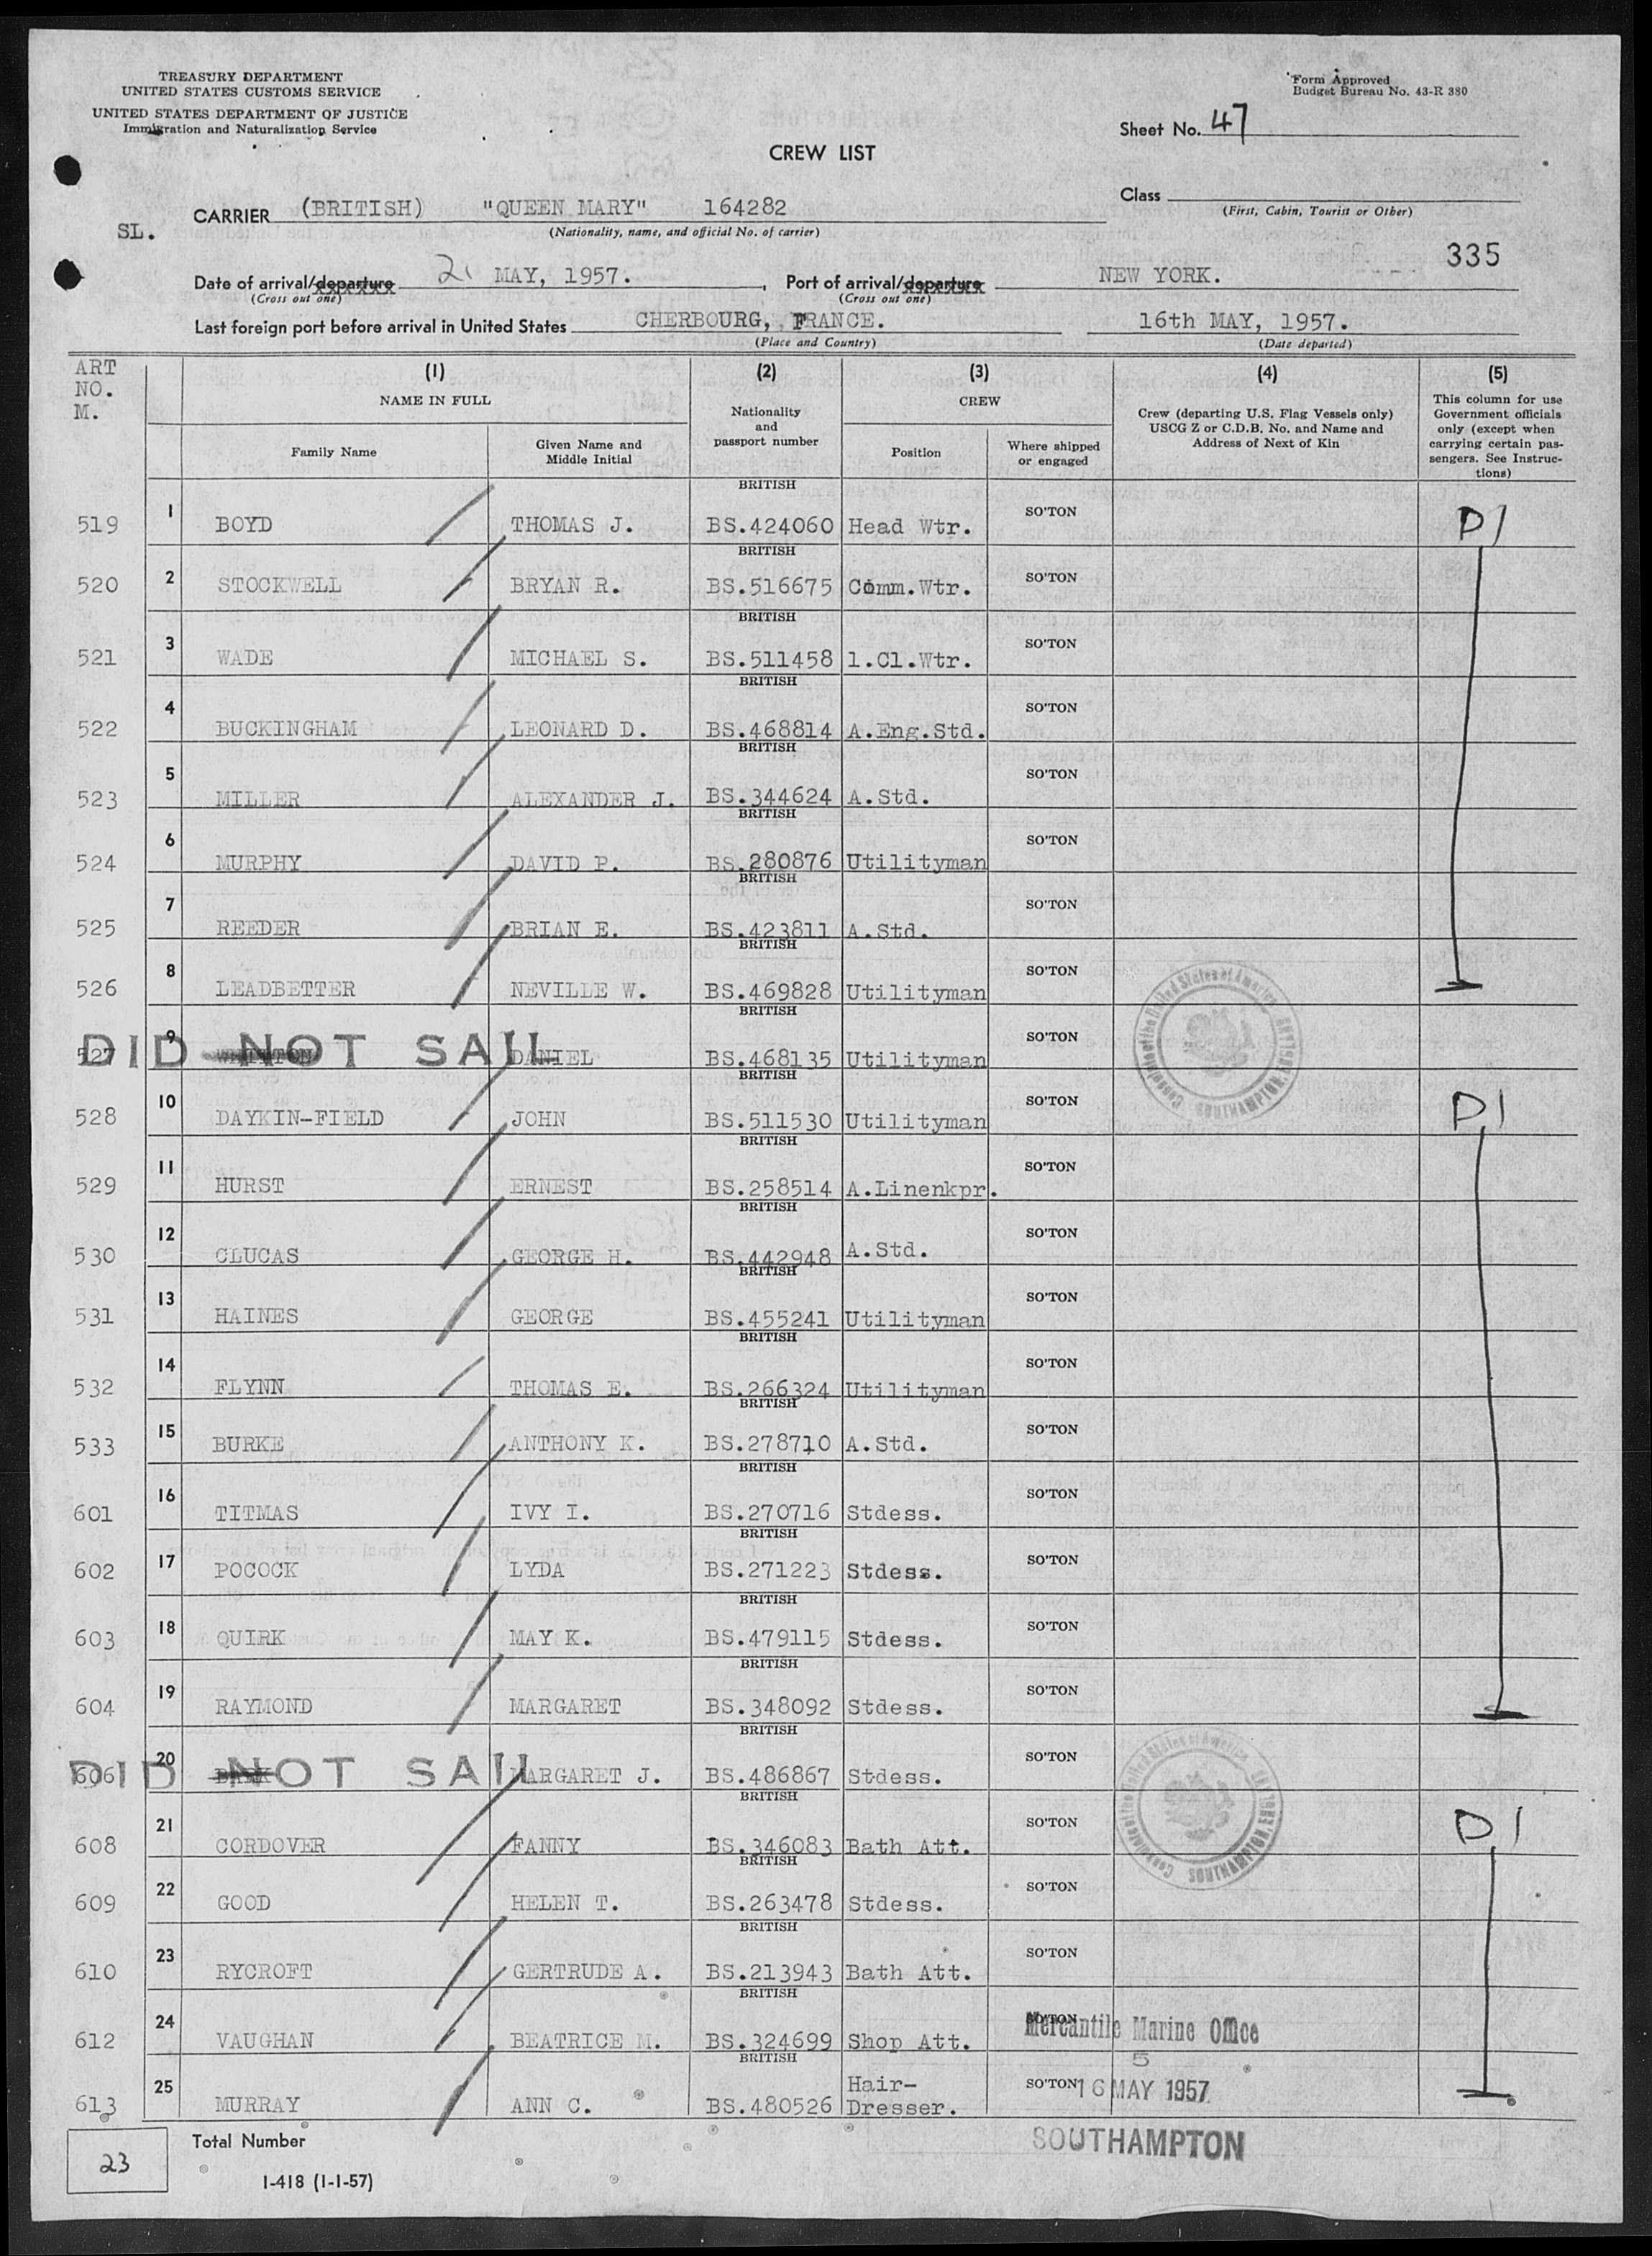 TREASURY DEPARTMENT
UNITED STATES CUSTOMS SERVICE
UNITED STATES DEPARTMENT OF JUSTICE
Immigration and Naturalization Service
Form Approved
Budget Bureau No. 43-R 380
Sheet No. 47
CREW LIST
Class
(First, Cabin, Tourist or Other)
SL.
CARRIER (BRITISH) "QUEEN MARY" 164282
(Nationality, name, and official No. of carrier)
335
Date of arrival/departure 21 MAY, 1957. , Port of arrival/departure NEW YORK.
(Cross out one) (Cross out one)
Last foreign port before arrival in United States CHERBOURG, FRANCE. 16th MAY, 1957.
(Place and Country) (Date departed)
ART NO. M.
(1) NAME IN FULL
Family Name
Given Name and Middle Initial
(2) Nationality and passport number
(3) CREW
Position
Where shipped or engaged
(4) Crew (departing U.S. Flag Vessels only) USCG Z or C.D.B. No. and Name and Address of Next of Kin
(5) This column for use Government officials only (except when carrying certain passengers. See Instructions)
519 1 BOYD THOMAS J. BRITISH BS.424060 Head Wtr. SO'TON D1
520 2 STOCKWELL BRYAN R. BRITISH BS.516675 Comm.Wtr. SO'TON
521 3 WADE MICHAEL S. BRITISH BS.511458 1.Cl.Wtr. SO'TON
522 4 BUCKINGHAM LEONARD D. BRITISH BS.468814 A.Eng.Std. SO'TON
523 5 MILLER ALEXANDER J. BRITISH BS.344624 A.Std. SO'TON
524 6 MURPHY DAVID P. BRITISH BS.280876 Utilityman SO'TON
525 7 REEDER BRIAN E. BRITISH BS.423811 A.Std. SO'TON
526 8 LEADBETTER NEVILLE W. BRITISH BS.469828 Utilityman SO'TON
527 9 DID NOT SAIL DANIEL BRITISH BS.468135 Utilityman SO'TON
528 10 DAYKIN-FIELD JOHN BRITISH BS.511530 Utilityman SO'TON D1
529 11 HURST ERNEST BRITISH BS.258514 A.Linenkpr. SO'TON
530 12 CLUCAS GEORGE H. BRITISH BS.442948 A.Std. SO'TON
531 13 HAINES GEORGE BRITISH BS.455241 Utilityman SO'TON
532 14 FLYNN THOMAS E. BRITISH BS.266324 Utilityman SO'TON
533 15 BURKE ANTHONY K. BRITISH BS.278710 A.Std. SO'TON
601 16 TITMAS IVY I. BRITISH BS.270716 Stdess. SO'TON
602 17 POCOCK LYDA BRITISH BS.271223 Stdess. SO'TON
603 18 QUIRK MAY K. BRITISH BS.479115 Stdess. SO'TON
604 19 RAYMOND MARGARET BRITISH BS.348092 Stdess. SO'TON
606 20 DID NOT SAIL MARGARET J. BRITISH BS.486867 Stdess. SO'TON
608 21 CORDOVER FANNY BRITISH BS.346083 Bath Att. SO'TON D1
609 22 GOOD HELEN T. BRITISH BS.263478 Stdess. SO'TON
610 23 RYCROFT GERTRUDE A. BRITISH BS.213943 Bath Att. SO'TON
612 24 VAUGHAN BEATRICE M. BRITISH BS.324699 Shop Att. SO'TON
Mercantile Marine Office
5
613 25 MURRAY ANN C. BRITISH BS.480526 Hair-Dresser. SO'TON
16 MAY 1957
SOUTHAMPTON
23 Total Number
I-418 (1-1-57)